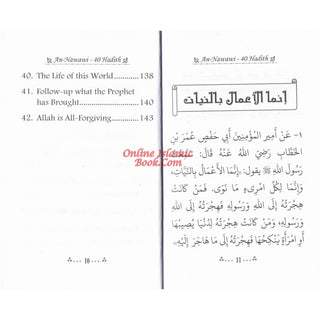 An-Nawawi - 40 Hadith
40. The Life of this World ............ 138
41. Follow-up what the Prophet
has Brought ........................ 140
42. Allah is All-Forgiving ............ 143
10
An-Nawawi - 40 Hadith
إنما الأعمال بالنيات
١- عَنْ أَمِيرِ الْمُؤْمِنِينَ أَبِي حَفْصٍ عُمَرَ بْنِ
الْخَطَّابِ رَضِيَ اللهُ عَنْهُ قَالَ: سَمِعْتُ
رَسُولَ اللهِ ﷺ يَقُولُ: «إِنَّمَا الْأَعْمَالُ بِالنِّيَّاتِ،
وَإِنَّمَا لِكُلِّ امْرِىءٍ مَا نَوَى. فَمَنْ كَانَتْ
هِجْرَتُهُ إِلَى اللهِ وَرَسُولِهِ فَهِجْرَتُهُ إِلَى اللهِ
وَرَسُولِهِ، وَمَنْ كَانَتْ هِجْرَتُهُ لِدُنْيَا يُصِيبُهَا
أَوِ امْرَأَةٍ يَنْكِحُهَا فَهِجْرَتُهُ إِلَى مَا هَاجَرَ إِلَيْهِ..
11
Online Islamic
Book.Com